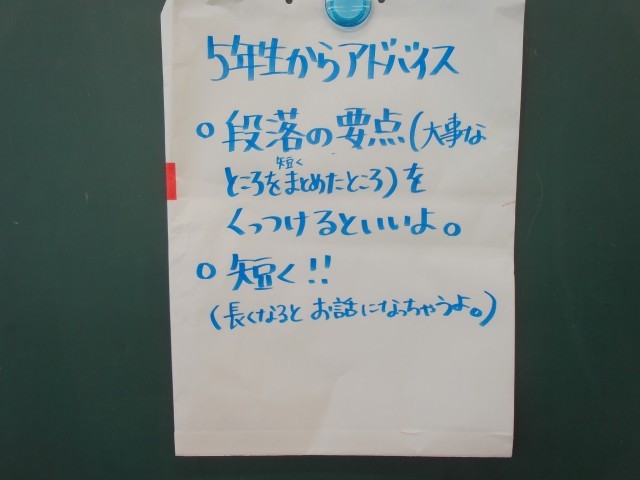 5年生からアドバイス
○段落の要点(大事な
短く
ところをまとめたところ)を
くっつけるといいよ。
○短く!!
(長くなるとお話になっちゃうよ。)